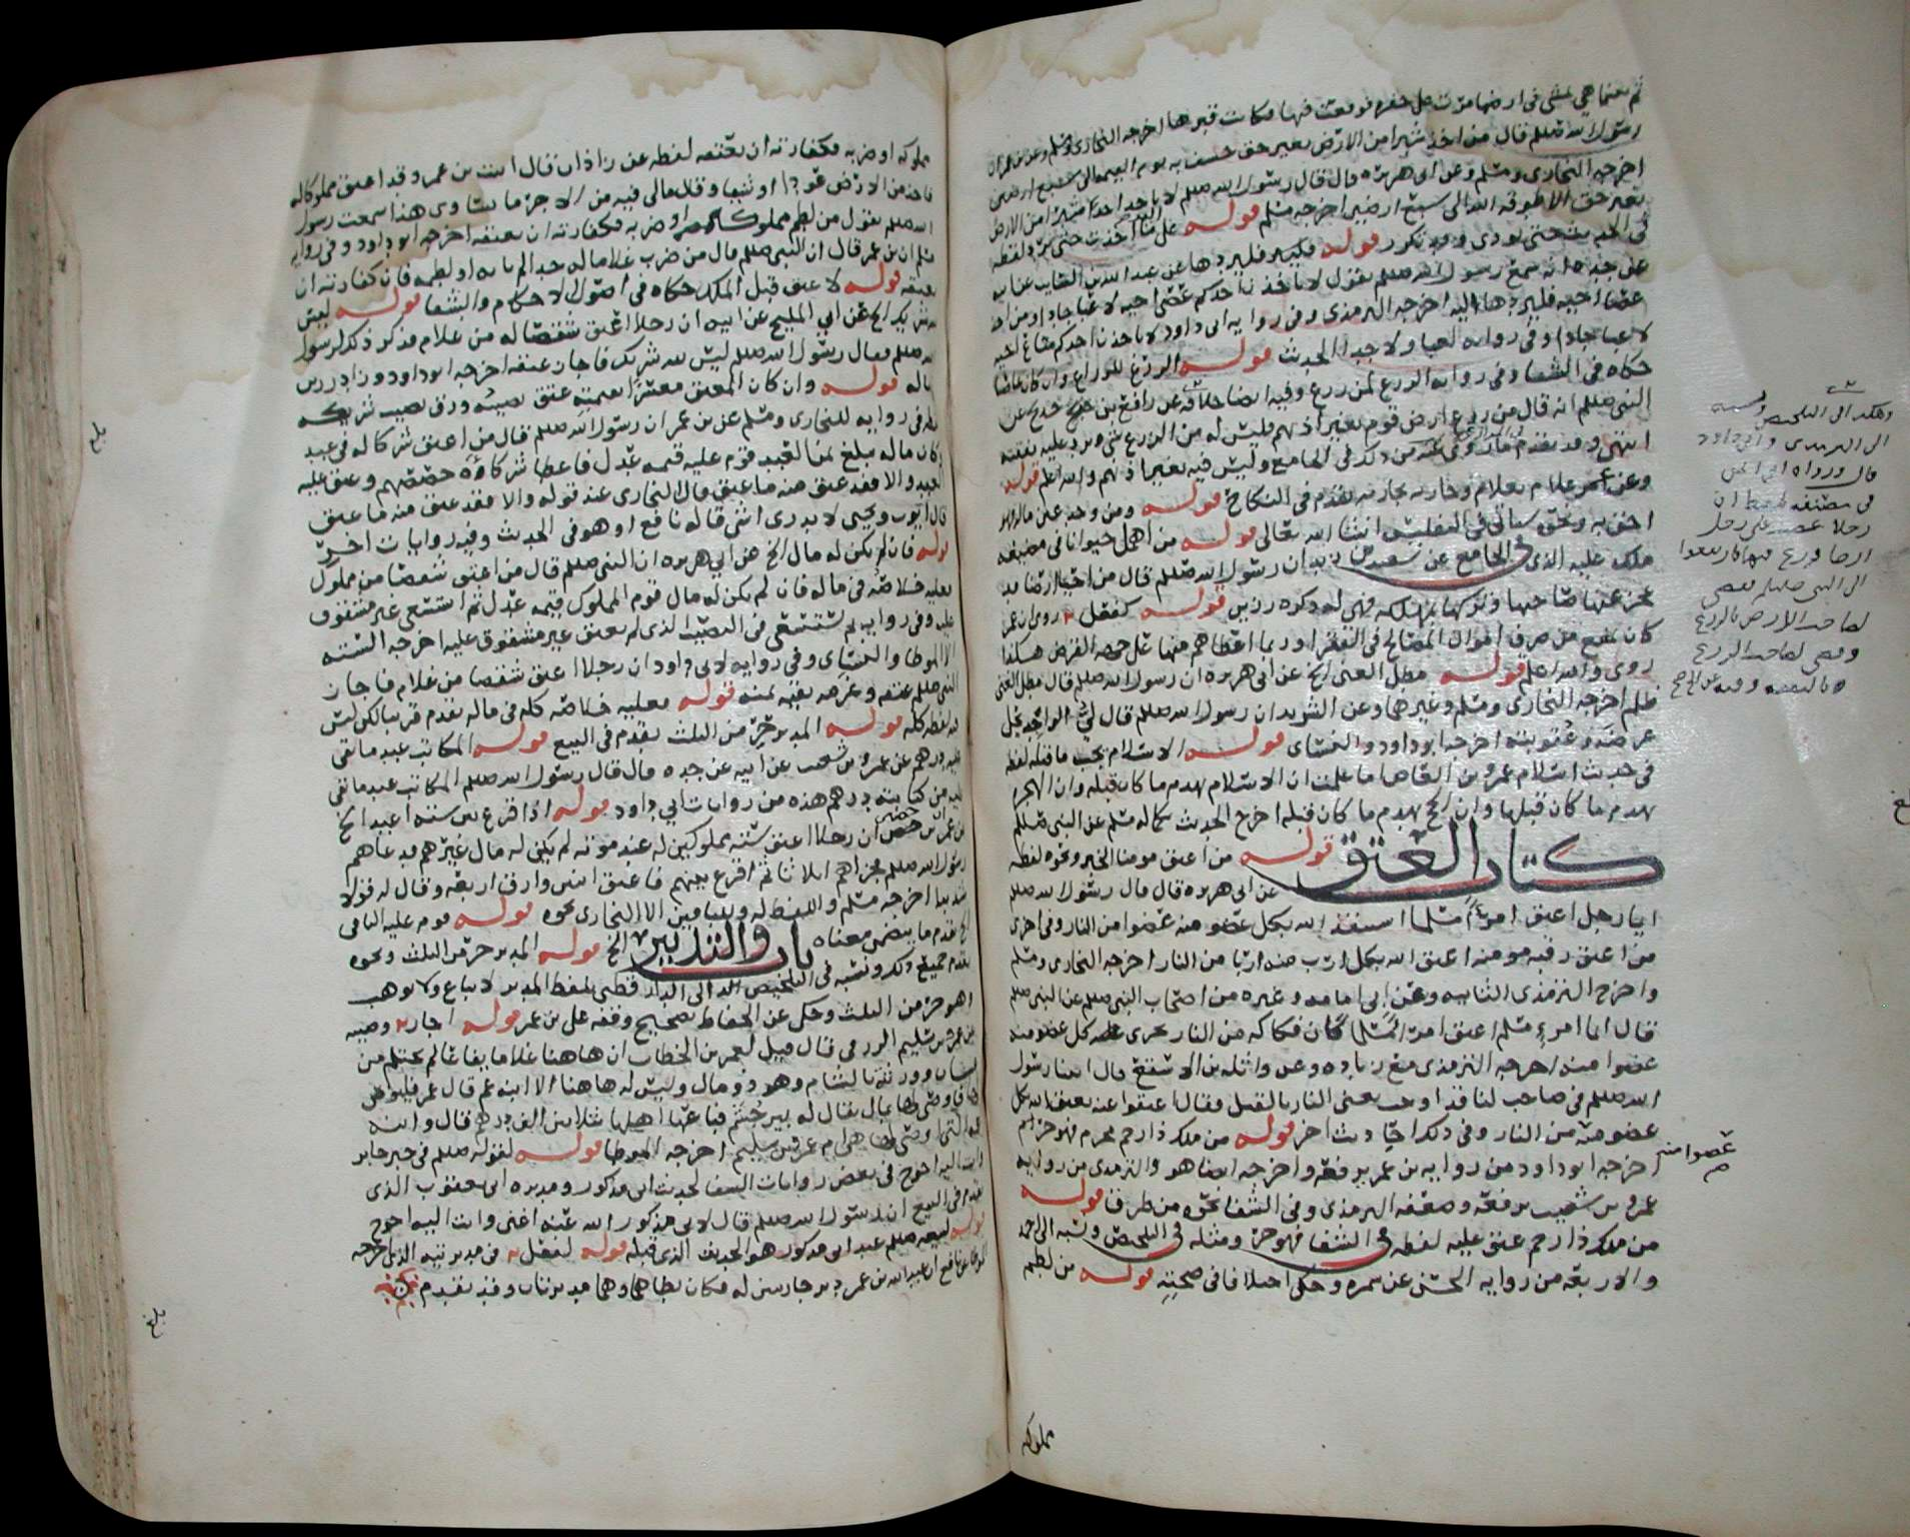 ثم بينما هي تمشي في ارضها مرت على حفره فوقعت فيها فكانت قبرها اخرجه البخاري ومسلم وعن بن عمر ان
رسول الله صللم قال من اخذ شبرا من الارض بغير حق خسف به يوم القيمه الى سبع ارضين
اخرجه البخاري ومسلم وعن ابي هريره قال قال رسول الله صللم لا ياخذ احد شبرا من الارض
بغير حق الا طوقه الله الى سبع ارضين اخرجه مسلم قوله على اليد ما اخذت حتى ترد لفظه
في حتى تودي وقد تكرر قوله فليرد عن عبد الله بن السايب عن ابيه
عن جده انه سمع رسول الله صللم يقول لا ياخذن احدكم عصى اخيه لاعبا جادا ومن اخذ
عصا اخيه فليردها اليه اخرجه الترمذي وفي روايه ابي داود لا ياخذن احدكم متاع اخيه
لاعبا جادا وفي روايه لعبا ولا جدا الحديث قوله الزرع للزراع وان كان غاصبا
حكاه في الشفا وفي روايه الزرع لمن زرع وفيه ايضا خلافه عن رافع بن خديج عن
النبي صللم انه قال من زرع ارض قوم بغير اذنهم فليس له من الزرع شي وترد عليه نفقته
انتهى وقد تقدم من ذلك في الجامع وليس فيه بغير اذنهم والله اعلم قوله
وعن عمر غلام بغلام وجاريه بجاريه تقدم في النكاح قوله ومن وجد عين ماله فهو
احق به ونحوه سياتي في التفليس ان شا الله تعالى قوله من اهمل حيوانا في مضيعه
ملك عليه الذي في الجامع عن سعيد بن زيد ان رسول الله صللم قال من احيا ارضا قد
عجز عنها صاحبها وتركها بمهلكه فهي له ذكره رزين قوله كفعل روي ان عمر
كان من صرف اموال المصالح في الفقرا وربما اعطاهم منها على جهه القرض هكذا
روي والله اعلم قوله مطل الغني الخ عن ابي هريره ان رسول الله صللم قال مطل الغني
ظلم اخرجه البخاري ومسلم وغيرهما وعن الشريد ان رسول الله صللم قال لي الواجد يحل
عرضه وعقوبته اخرجه ابو داود والنسائي قوله الاسلام يجب ما قبله لفظه
في حديث اسلام عمرو بن العاص اما علمت ان الاسلام يهدم ما كان قبله وان الهجره
تهدم ما كان قبلها وان الحج يهدم ما كان قبله اخرج الحديث بكماله مسلم عن النبي صللم
كتاب العتق قوله من اعتق مومنا الخبر ونحوه لفظه
عن ابي هريره قال قال رسول الله صللم
ايما رجل اعتق امرأ مسلما استنقذ الله بكل عضو منه عضوا من النار وفي اخرى
من اعتق رقبه مومنه اعتق الله بكل ارب منه اربا من النار اخرجه البخاري ومسلم
واخرج الترمذي الثانيه وعن ابي امامه وغيره من اصحاب النبي صللم عن النبي صللم
قال ايما امرء مسلم اعتق امرا مسلما كان فكاكه من النار يجزي كل عضو منه
عضوا منه اخرجه الترمذي مع زياده وعن واثله بن الاسقع قال اتينا رسول
الله صللم في صاحب لنا قد اوجب يعني النار بالقتل فقال اعتقوا عنه يعتق الله بكل
عضو منه من النار وفي ذلك احاديث اخر قوله من ملك ذا رحم محرم فهو حر
عضوا منه
اخرجه ابو داود من روايه بن عمر برفعه واخرجه ايضا هو والترمذي من روايه
عمرو بن شعيب برفعه وضعفه الترمذي وفي الشفا نحوه من طرق قوله
من ملك ذا رحم عتق عليه لفظه في الشفا فهو حر ومثله في التلخيص ونسبه الى احمد
والاربعه من روايه الحسن عن سمره وحكى اختلافا في صحته قوله من لطم
مملوكه
وهكذا في التلخيص ونسبه
الى الترمذي وابي داود
قال ورواه
في مصنفه بلفظ ان
رجلا غصب على رجل
ارضا وزرع فيها فارتفعوا
الى النبي صللم فقضى
لصاحب الارض بالزرع
وقضى لصاحب الزرع
بالنفقه
مملوكه او ضربه فكفارته ان يعتقه لفظه عن زاذان قال اتيت بن عمر وقد اعتق مملوكا له
فاخذ من الارض عودا او شيا وقال مالي فيه من الاجر ما يساوي هذا سمعت رسول
الله صللم يقول من لطم مملوكا له او ضربه فكفارته ان يعتقه اخرجه ابو داود وفي روايه
مسلم ان بن عمر قال ان النبي صللم قال من ضرب غلاما له حدا لم ياته او لطمه فان كفارته ان
يعتقه قوله لا عتق قبل الملك حكاه في اصول الاحكام والشفا قوله ليس
لله شريك الخ عن ابي المليح عن ابيه ان رجلا اعتق شقصا له من غلام فذكر ذلك لرسول
الله صللم فقال رسول الله صللم ليس لله شريك فاجاز عتقه اخرجه ابو داود وزاد رزين
ماله قوله وان كان المعتق معسرا عتق نصيبه ورق نصيب شريكه
في روايه للبخاري ومسلم عن بن عمر ان رسول الله صللم قال من اعتق شركا له في عبد
وكان ماله يبلغ ثمن العبد قوم عليه قيمه عدل فاعطا شركاؤه حصصهم وعتق عليه
العبد والا فقد عتق منه ما عتق قال البخاري عند قوله والا فقد عتق منه ما عتق
قال ايوب ويحيى لا يدري اشي قاله نافع او هو في الحديث وفيه روايات اخر
قوله فان لم يكن له مال الخ عن ابي هريره ان النبي صللم قال من اعتق شقصا من مملوك
فعليه خلاصه في ماله فان لم يكن له مال قوم المملوك قيمه عدل ثم استسعي غير مشقوق
عليه وفي روايه ثم يستسعى في النصيب الذي لم يعتق غير مشقوق عليه اخرجه السته
الا الموطا والنسائي وفي روايه لابي داود ان رجلا اعتق شقصا من غلام فاجاز
النبي صللم عتقه وغرمه بقيه ثمنه قوله فعليه خلاصه كله في ماله تقدم قريبا لكن ليس
فيه لفظ كله قوله المدبر حر من الثلث تقدم في البيع قوله المكاتب عبد ما بقي
عليه درهم عن عمرو بن شعيب عن ابيه عن جده قال قال رسول الله صللم المكاتب عبد ما بقي
عليه من كتابته درهم هذه من روايات ابي داود قوله اذا اقرع بين سته اعبد الخ
عن عمران بن حصين ان رجلا اعتق سته مملوكين له عند موته لم يكن له مال غيرهم فدعاهم
رسول الله صللم فجزاهم اثلاثا ثم اقرع بينهم فاعتق اثنين وارق اربعه وقال له قولا
شديدا اخرجه مسلم واللفظ له والباقين الا البخاري نحوه قوله قوم عليه الباقي
الخ تقدم ما يتضمن معناه باب والتدبير الخ قوله المدبر حر من الثلث ونحوه
تقدم جميع ذلك ونسبه في التلخيص الى الدارقطني بلفظ المدبر لا يباع ولا يوهب
وهو حر من الثلث وحكى عن الحفاظ تصحيح وقفه على بن عمر قوله اجاز وصيه
عن عمرو بن سليم الزرقي قال قيل لعمر بن الخطاب ان هاهنا غلاما يفاعا لم يحتلم من
غسان وورثته بالشام وهو ذو مال وليس له هاهنا الا ابنه عم قال عمر فليوص
لها فاوصى لها بمال يقال له بير جشم فباعها اهلها بثلاثين الف درهم قال وابنه
عمه التي اوصى لها هي ام عمرو بن سليم اخرجه الموطا قوله لقوله صللم في خبر جابر
وانت اليه احوج في بعض روايات الشفا لحديث ابي مذكور ومدبره ابي يعقوب الذي
تقدم في البيع ان رسول الله صللم قال لابي مذكور الله عنه اغنى وانت اليه احوج
قوله لبيعه صللم عبد ابي مذكور هو الحديث الذي قبله قوله لفعل في مدبرتيه الذي اخرجه
الموطا عن نافع ان عبد الله بن عمر دبر جاريتين له فكان يطاهما وهما مدبرتان وقد تقدم
بلغ
بلغ